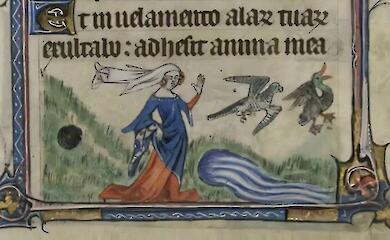 Et in uelamento alaꝝ tuaꝝ
exultabo : adhesit anima mea